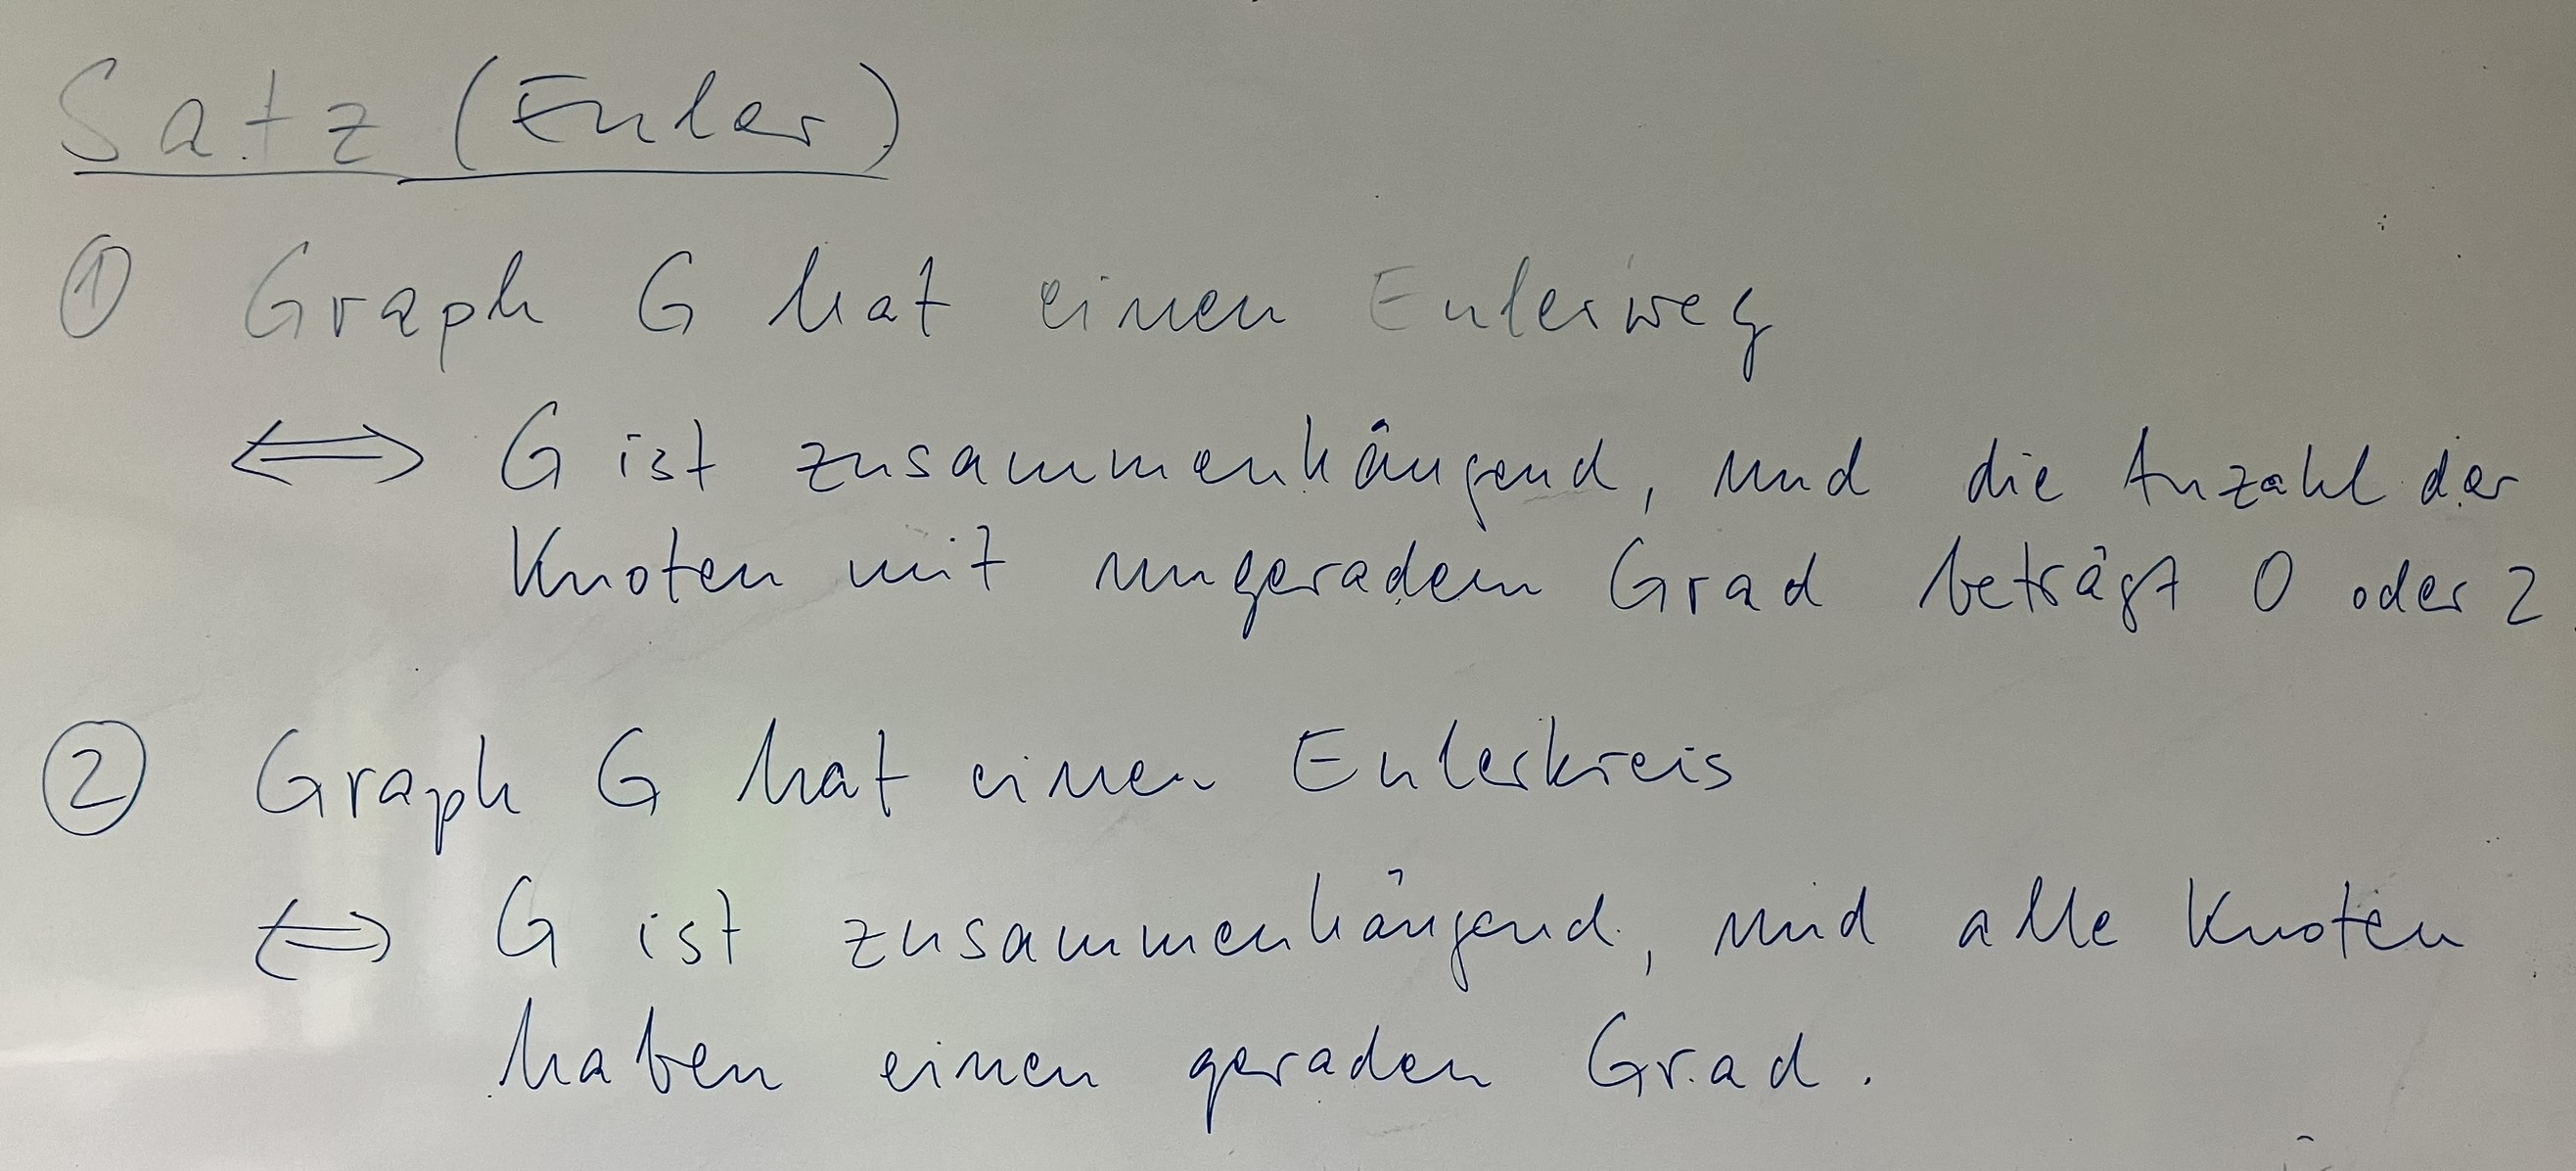 Satz (Euler)
① Graph G hat einen Eulerweg
⟺ G ist zusammenhängend, und die Anzahl der
Knoten mit ungeradem Grad beträgt 0 oder 2.
② Graph G hat einen Eulerkreis
⟺ G ist zusammenhängend, und alle Knoten
haben einen geraden Grad.